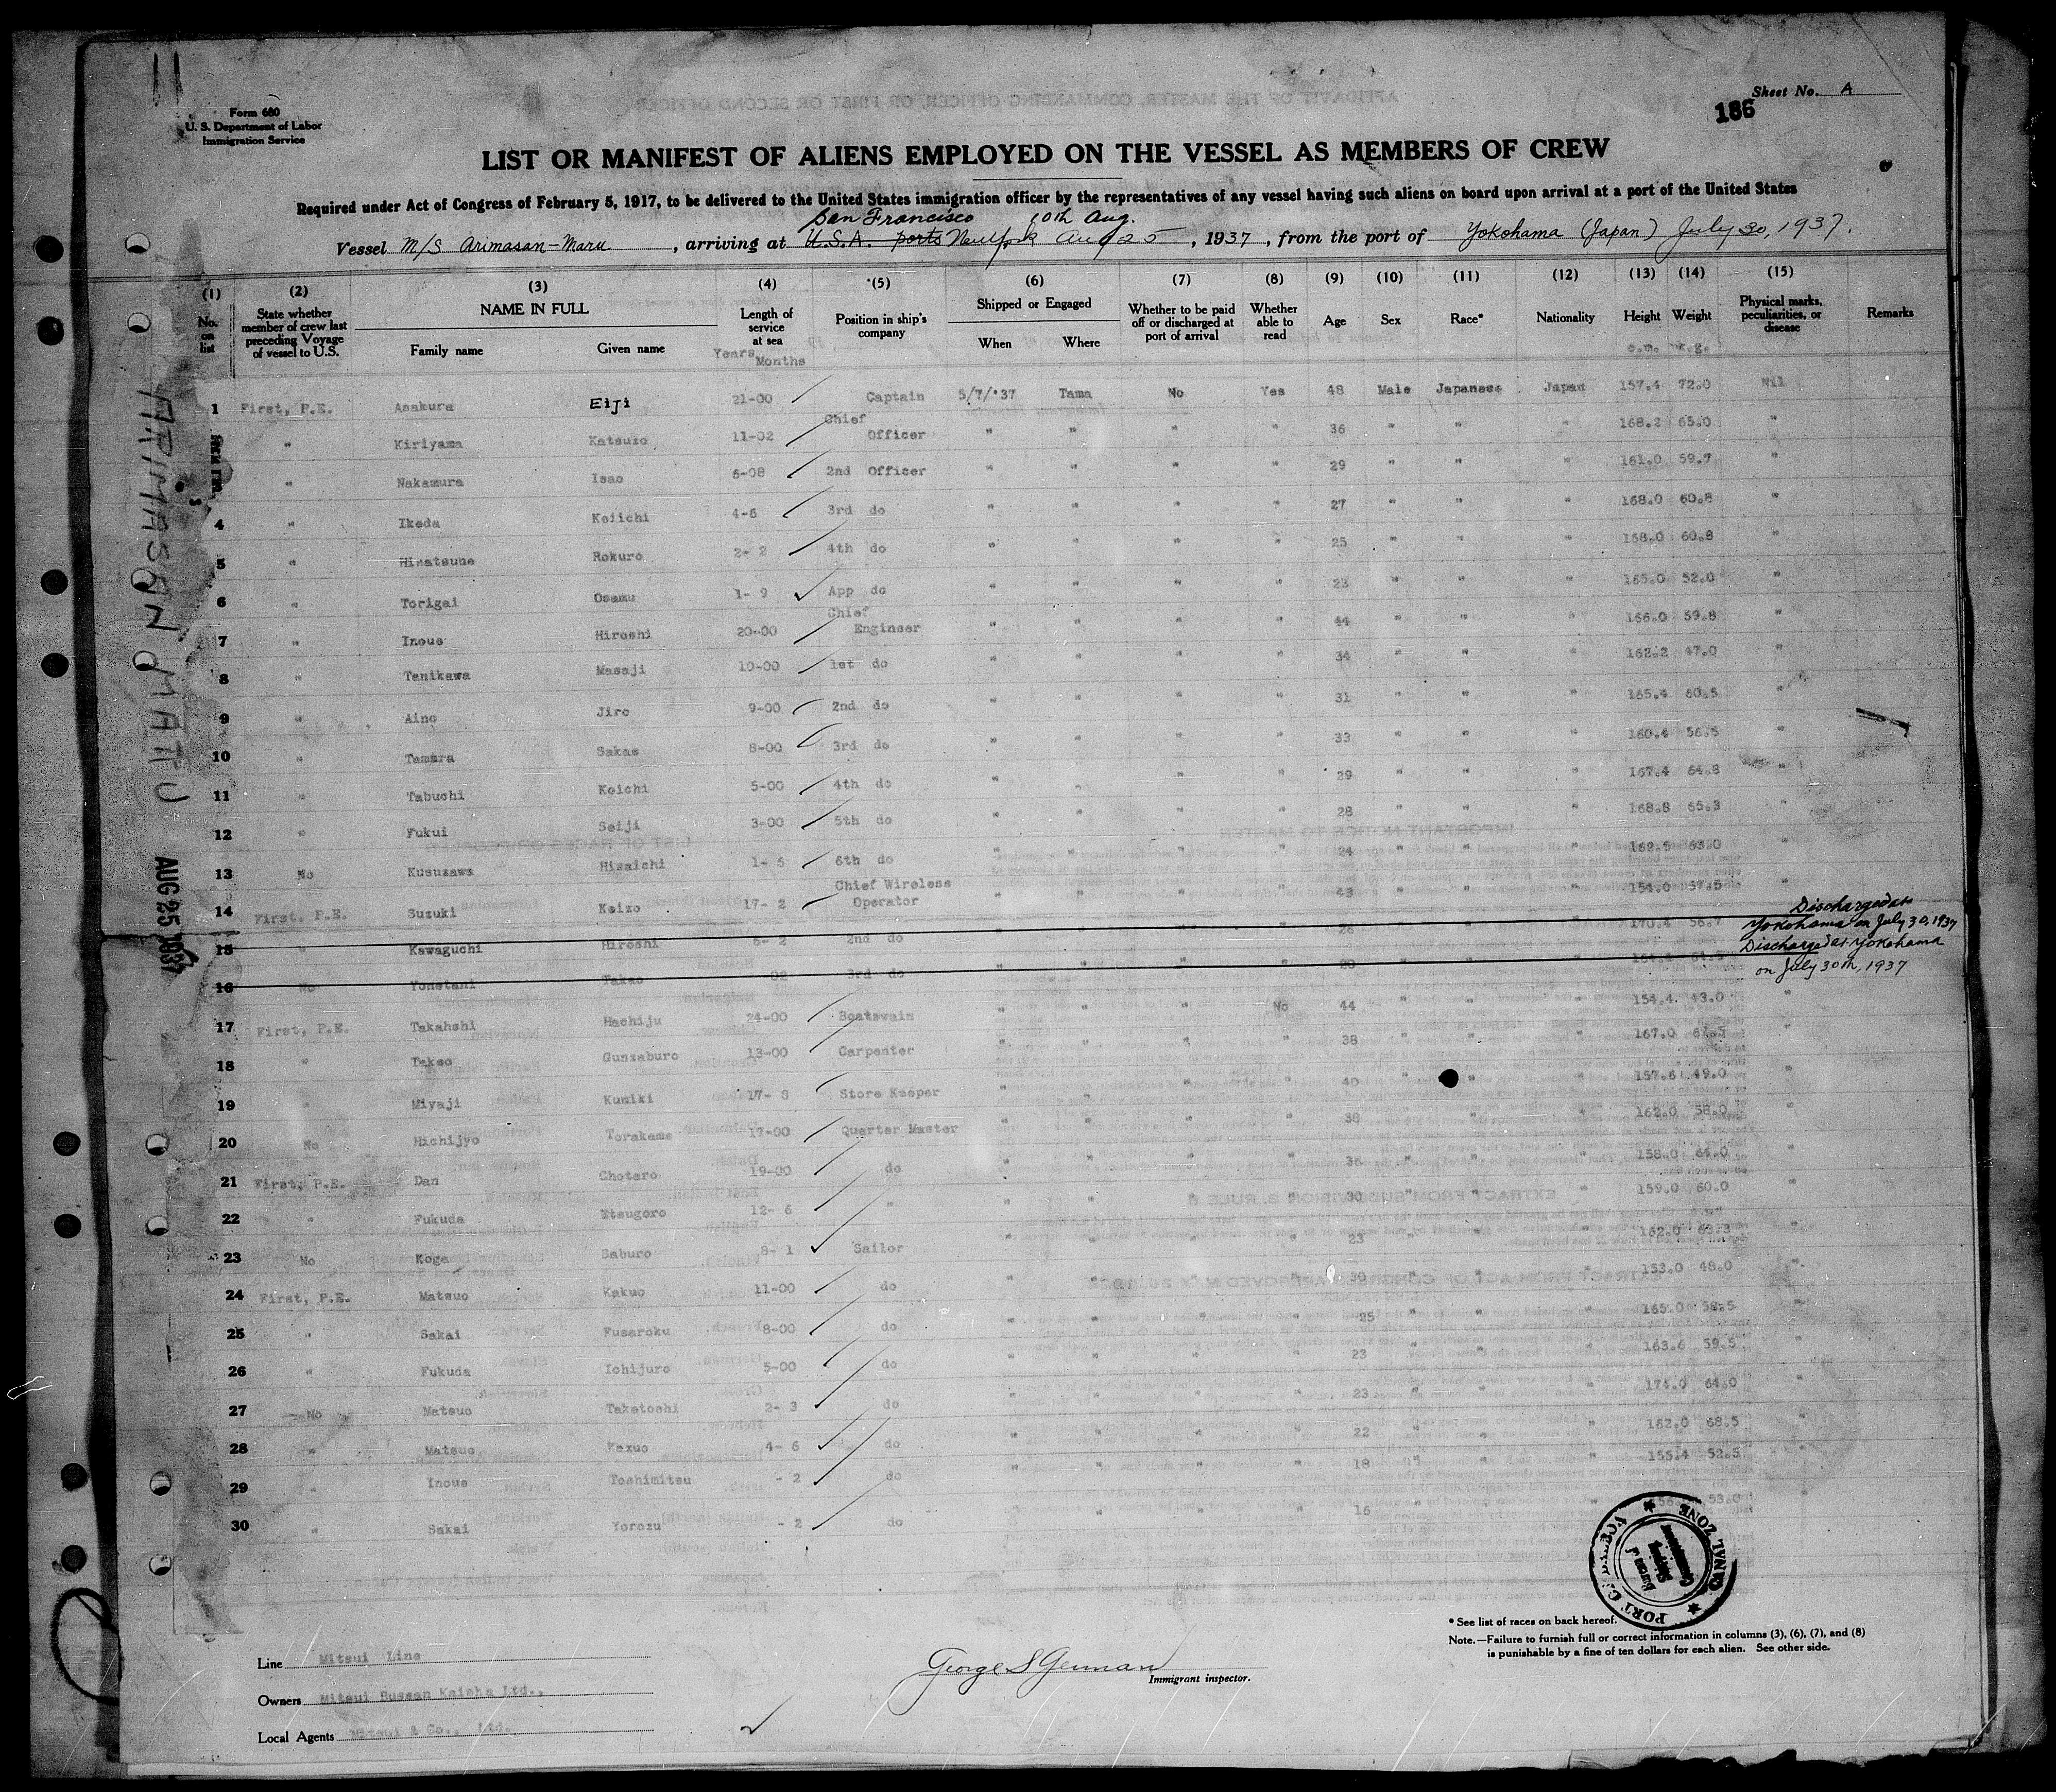 Form 680
U. S. Department of Labor
Immigration Service
Sheet No. A
186
LIST OR MANIFEST OF ALIENS EMPLOYED ON THE VESSEL AS MEMBERS OF CREW
Required under Act of Congress of February 5, 1917, to be delivered to the United States immigration officer by the representatives of any vessel having such aliens on board upon arrival at a port of the United States
San Francisco 10th Aug.
Vessel M/S Arimasan-Maru, arriving at U.S.A. ports New York Aug 25, 1937, from the port of Yokohama (Japan) July 30, 1937.
(1) (2) (3) (4) (5) (6) (7) (8) (9) (10) (11) (12) (13) (14) (15)
No. on list State whether member of crew last preceding Voyage of vessel to U.S. NAME IN FULL Family name Given name Length of service at sea Years Months Position in ship's company Shipped or Engaged When Where Whether to be paid off or discharged at port of arrival Whether able to read Age Sex Race* Nationality Height c.m. Weight k.g. Physical marks, peculiarities, or disease Remarks
1 First, P.E. Asakura Eiji 21-00 Captain 5/7/'37 Tama No Yes 48 Male Japanese Japan 157.4 72.0 Nil
" Kiriyama Katsuzo 11-02 Chief Officer " " " " 36 " " " 168.2 65.0 "
" Nakamura Isao 6-08 2nd Officer " " " " 29 " " " 161.0 59.7 "
4 " Ikeda Keiichi 4-6 3rd do " " " " 27 " " " 168.0 60.8 "
5 " Hisatsune Rokuro 2- 2 4th do " " " " 25 " " " 158.0 60.8 "
6 " Torigai Osamu 1- 9 App do " " " " 23 " " " 165.0 52.0 "
7 " Inoue Hiroshi 20-00 Chief Engineer " " " " 44 " " " 166.0 59.8 "
8 " Tanikawa Masaji 10-00 1st do " " " " 34 " " " 162.2 47.0 "
9 " Aino Jiro 9-00 2nd do " " " " 31 " " " 165.4 60.5 "
10 " Tamura Sakae 8-00 3rd do " " " " 33 " " " 160.4 56.5 "
11 " Tabuchi Koichi 5-00 4th do " " " " 29 " " " 167.4 64.8 "
12 " Fukui Seiji 3-00 5th do " " " " 28 " " " 168.8 65.3 "
13 No Kusuzawa Hisaichi 1- 5 6th do " " " " 24 " " " 162.5 63.0 "
14 First, P.E. Suzuki Keizo 17- 2 Chief Wireless Operator " " " " 43 " " " 154.0 57.5 "
15 " Kawaguchi Hiroshi 6- 2 2nd do 26 170.4 56.7 Discharged at Yokohama on July 30, 1937
16 No Yonetani Takao 3rd do 20 Discharged at Yokohama on July 30th, 1937
17 First, P.E. Takahshi Hachiju 24-00 Boatswain " " " No 44 " " " 154.4 43.0 "
18 " Takeo Gunzaburo 13-00 Carpenter " " " " 38 " " " 167.0 "
19 " Miyaji Kuniki 17- 8 Store Keeper " " " " 40 " " " 157.6 49.0 "
20 No Hichijyo Torakame 17-00 Quarter Master " " " " 38 " " " 162.0 58.0 "
21 First, P.E. Dan Chotaro 19-00 do " " " " 36 " " " 158.0 64.0 "
22 " Fukuda Etsugoro 12- 6 " " " " " 30 " " " 159.0 60.0 "
23 No Koga Saburo 8- 1 Sailor " " " " 23 " " " 162.0 63.3 "
24 First, P.E. Matsuo Kakuo 11-00 do " " " " 30 " " " 153.0 48.0 "
25 " Sakai Fusaroku 8-00 do " " " " 25 " " " 165.0 58.5 "
26 " Fukuda Ichijuro 5-00 do " " " " 23 " " " 163.6 59.5 "
27 No Matsuo Takatoshi 2- 3 do " " " " 23 " " " 174.0 64.0 "
28 " Matsuo Kazuo 4- 6 do " " " " 22 " " " 162.0 68.5 "
29 " Inoue Toshimitsu - 2 do " " " " 18 " " " 155.4 52.5 "
30 " Sakai Yorozu - 2 do " " " " 16 " " " 53.0
ARIMASAN MARU
AUG 25 1937
PORT CANAL ZONE
Shipping Commissioner
* See list of races on back hereof.
Note.—Failure to furnish full or correct information in columns (3), (6), (7), and (8)
is punishable by a fine of ten dollars for each alien. See other side.
Line Mitsui Line
Owners Mitsui Bussan Kaisha Ltd.,
Local Agents Mitsui & Co., Ltd.
George S German
Immigrant inspector.